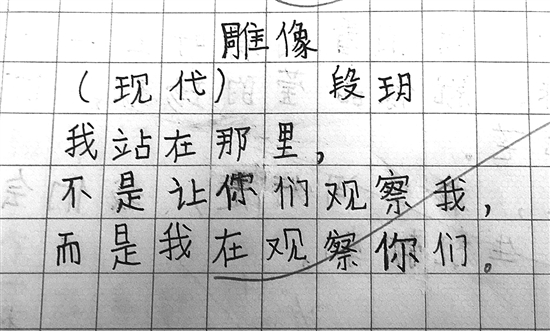 雕像
（现代） 段玥
我站在那里，
不是让你们观察我，
而是我在观察你们。